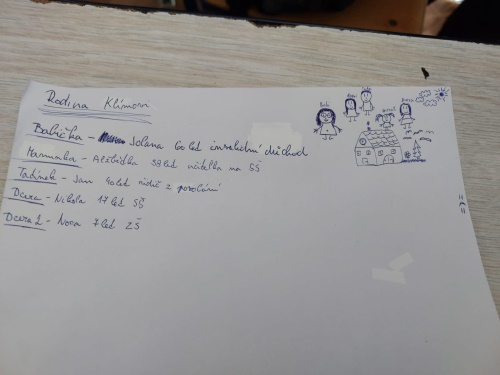 Rodina Klímova
Babička - Jolana 60 let invalidní důchod
Maminka - Alžbětka 38 let učitelka na SŠ
Tatínek - Jan 40 let řidič z povolání
Dcera - Nikola 17 let SŠ
Dcera 2 - Nora 7 let ZŠ